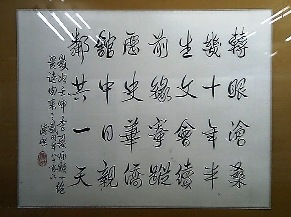 轉眼滄桑
幾十年半
生文會續
前緣尋蹤
歷史華僑
館中日親
鄰共一天